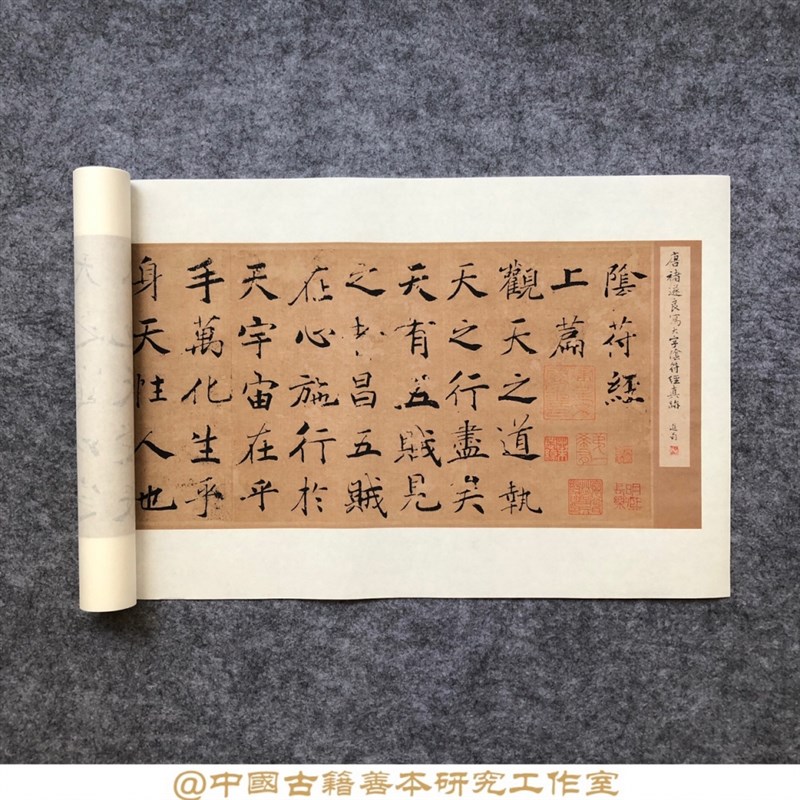 唐褚遂良寫大字陰符經真跡
陰符經
上篇
觀天之道執
天之行盡矣
天有五賊見
之者昌五賊
在心施行於
天宇宙在乎
手萬化生乎
身天性人也
@中國古籍善本研究工作室